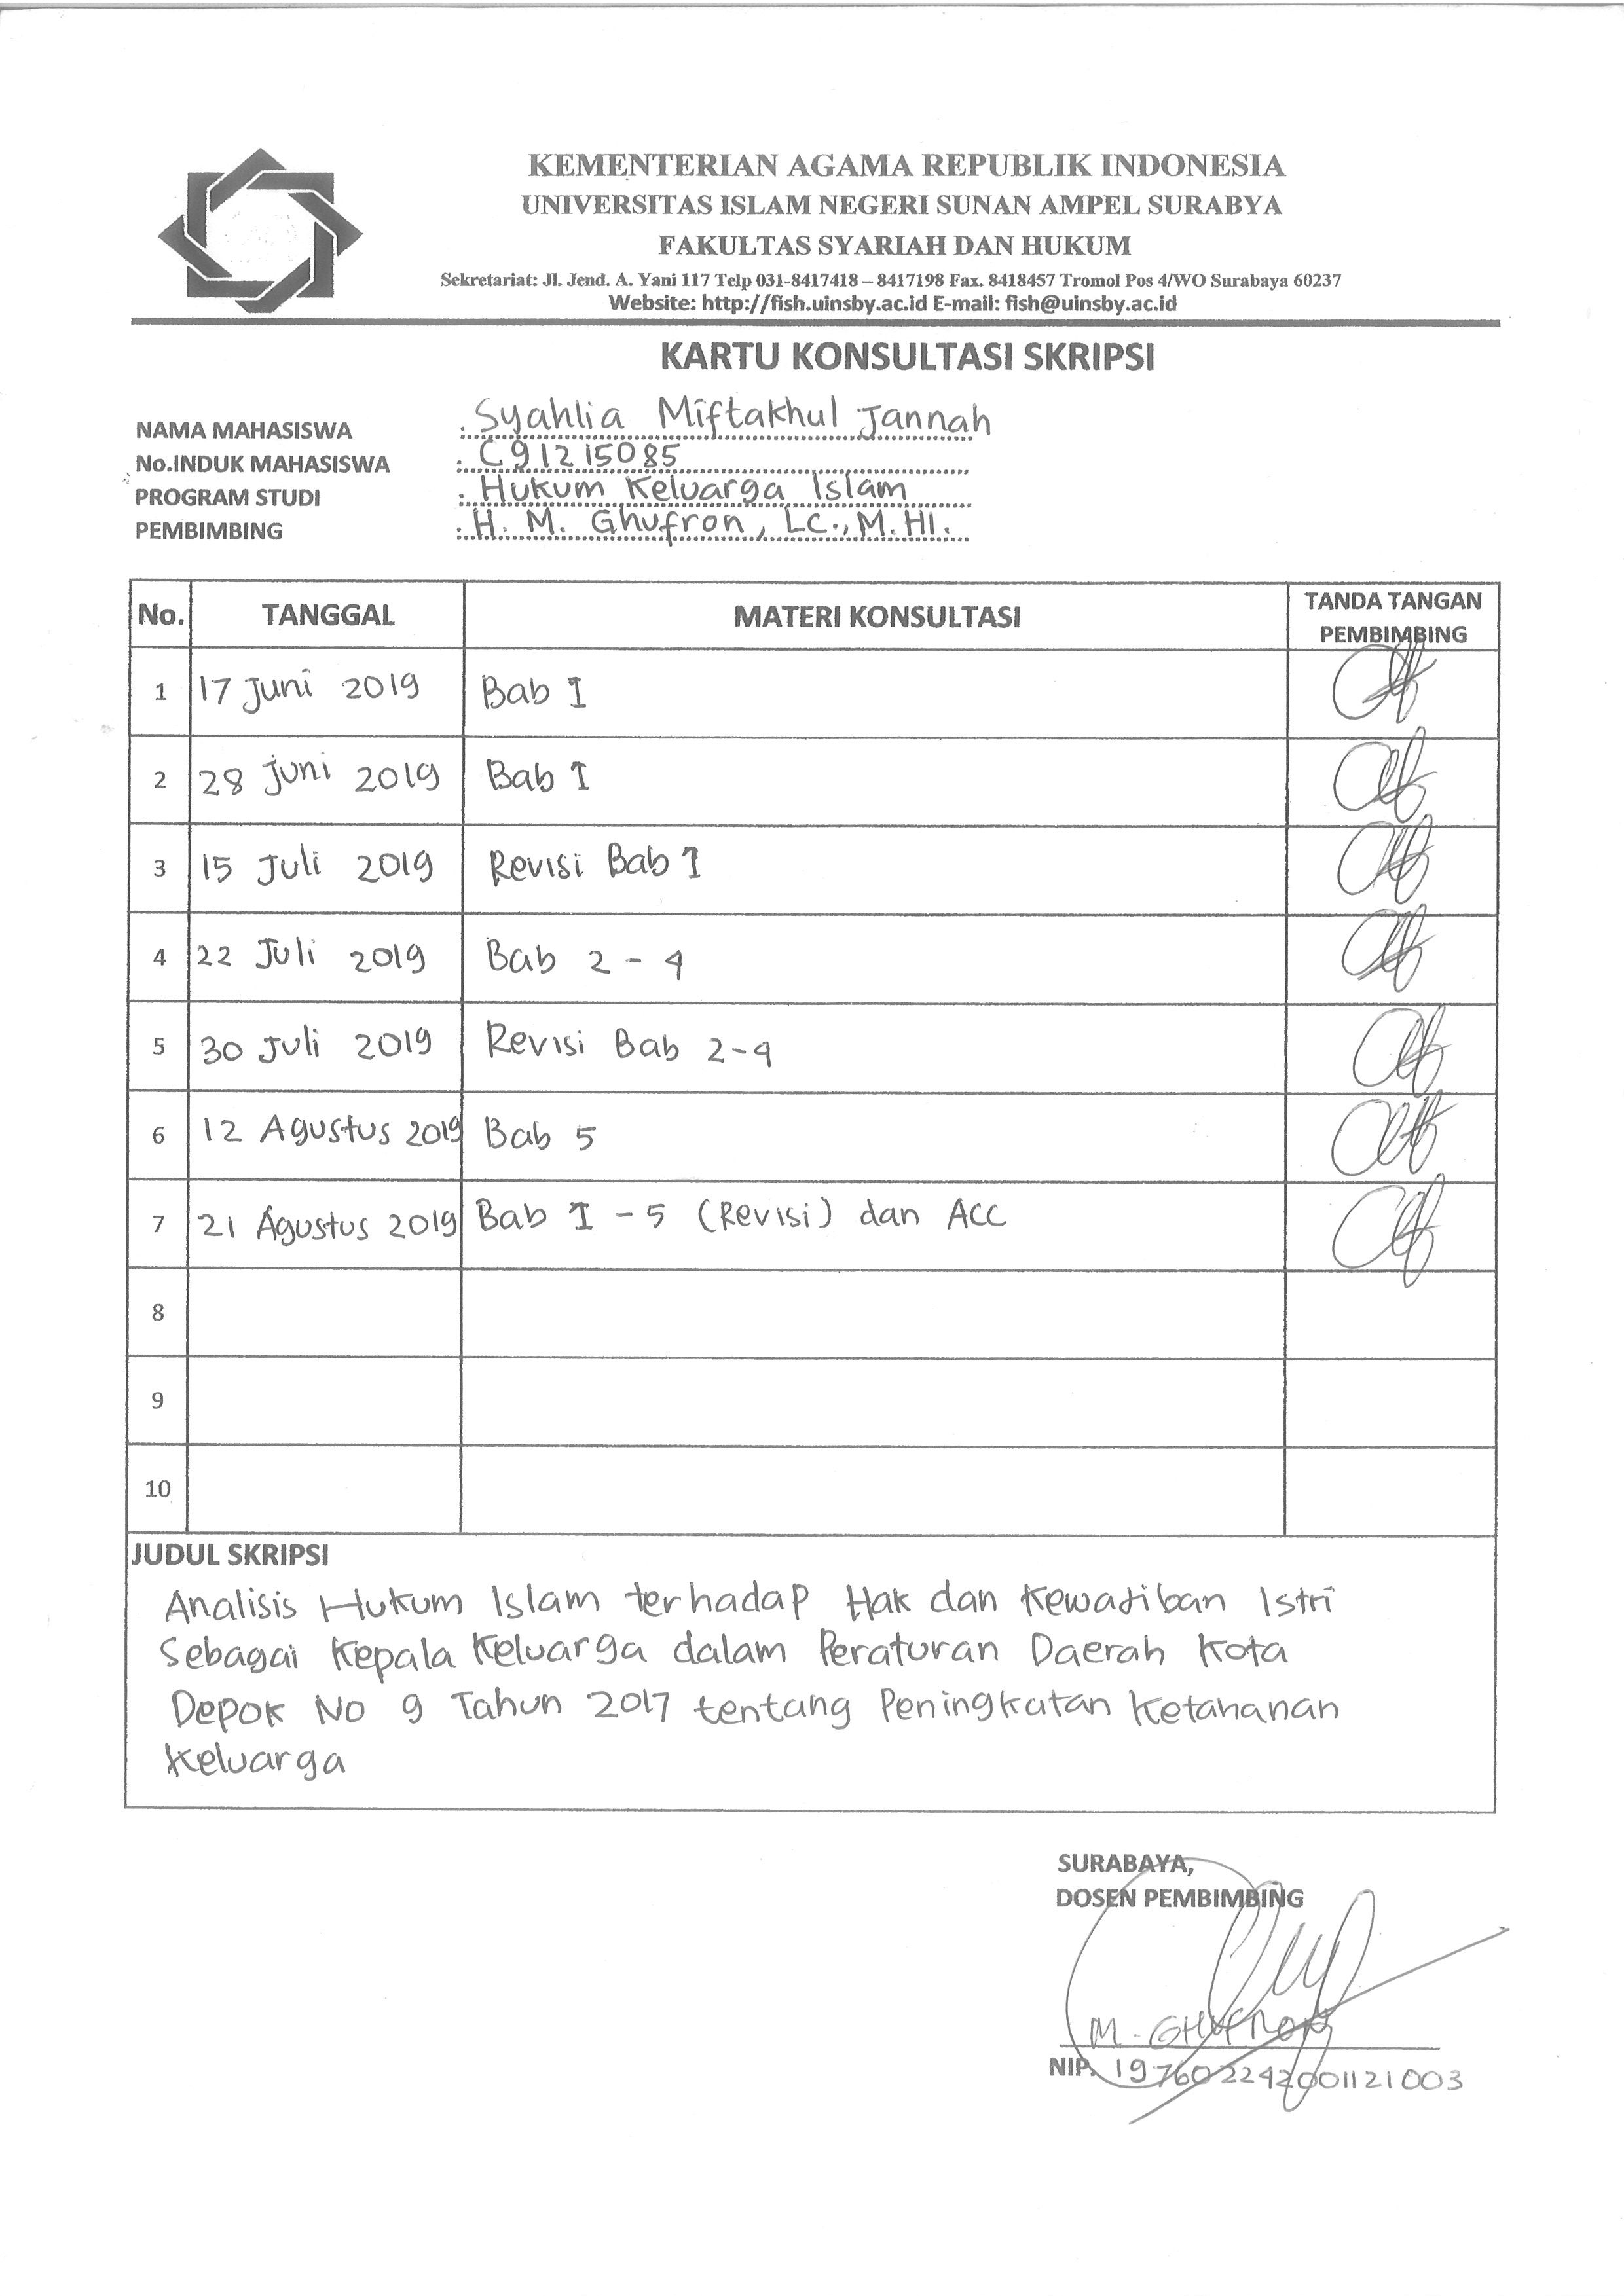 KEMENTERIAN AGAMA REPUBLIK INDONESIA
UNIVERSITAS ISLAM NEGERI SUNAN AMPEL SURABYA
FAKULTAS SYARIAH DAN HUKUM
Sekretariat: Jl. Jend. A. Yani 117 Telp 031-8417418 – 8417198 Fax. 8418457 Tromol Pos 4/WO Surabaya 60237
Website: http://fish.uinsby.ac.id E-mail: fish@uinsby.ac.id
KARTU KONSULTASI SKRIPSI
NAMA MAHASISWA : Syahlia Miftakhul Jannah
No.INDUK MAHASISWA : C91215085
PROGRAM STUDI : Hukum Keluarga Islam
PEMBIMBING : H. M. Ghufron, LC., M.HI.
No. TANGGAL MATERI KONSULTASI TANDA TANGAN PEMBIMBING
1 17 Juni 2019 Bab I
2 28 Juni 2019 Bab I
3 15 Juli 2019 Revisi Bab I
4 22 Juli 2019 Bab 2 - 4
5 30 Juli 2019 Revisi Bab 2-4
6 12 Agustus 2019 Bab 5
7 21 Agustus 2019 Bab I - 5 (Revisi) dan ACC
8
9
10
JUDUL SKRIPSI
Analisis Hukum Islam terhadap Hak dan Kewajiban Istri
Sebagai Kepala Keluarga dalam Peraturan Daerah Kota
Depok No 9 Tahun 2017 tentang Peningkatan Ketahanan
Keluarga
SURABAYA,
DOSEN PEMBIMBING
M. GHUFRON
NIP. 197602242001121003